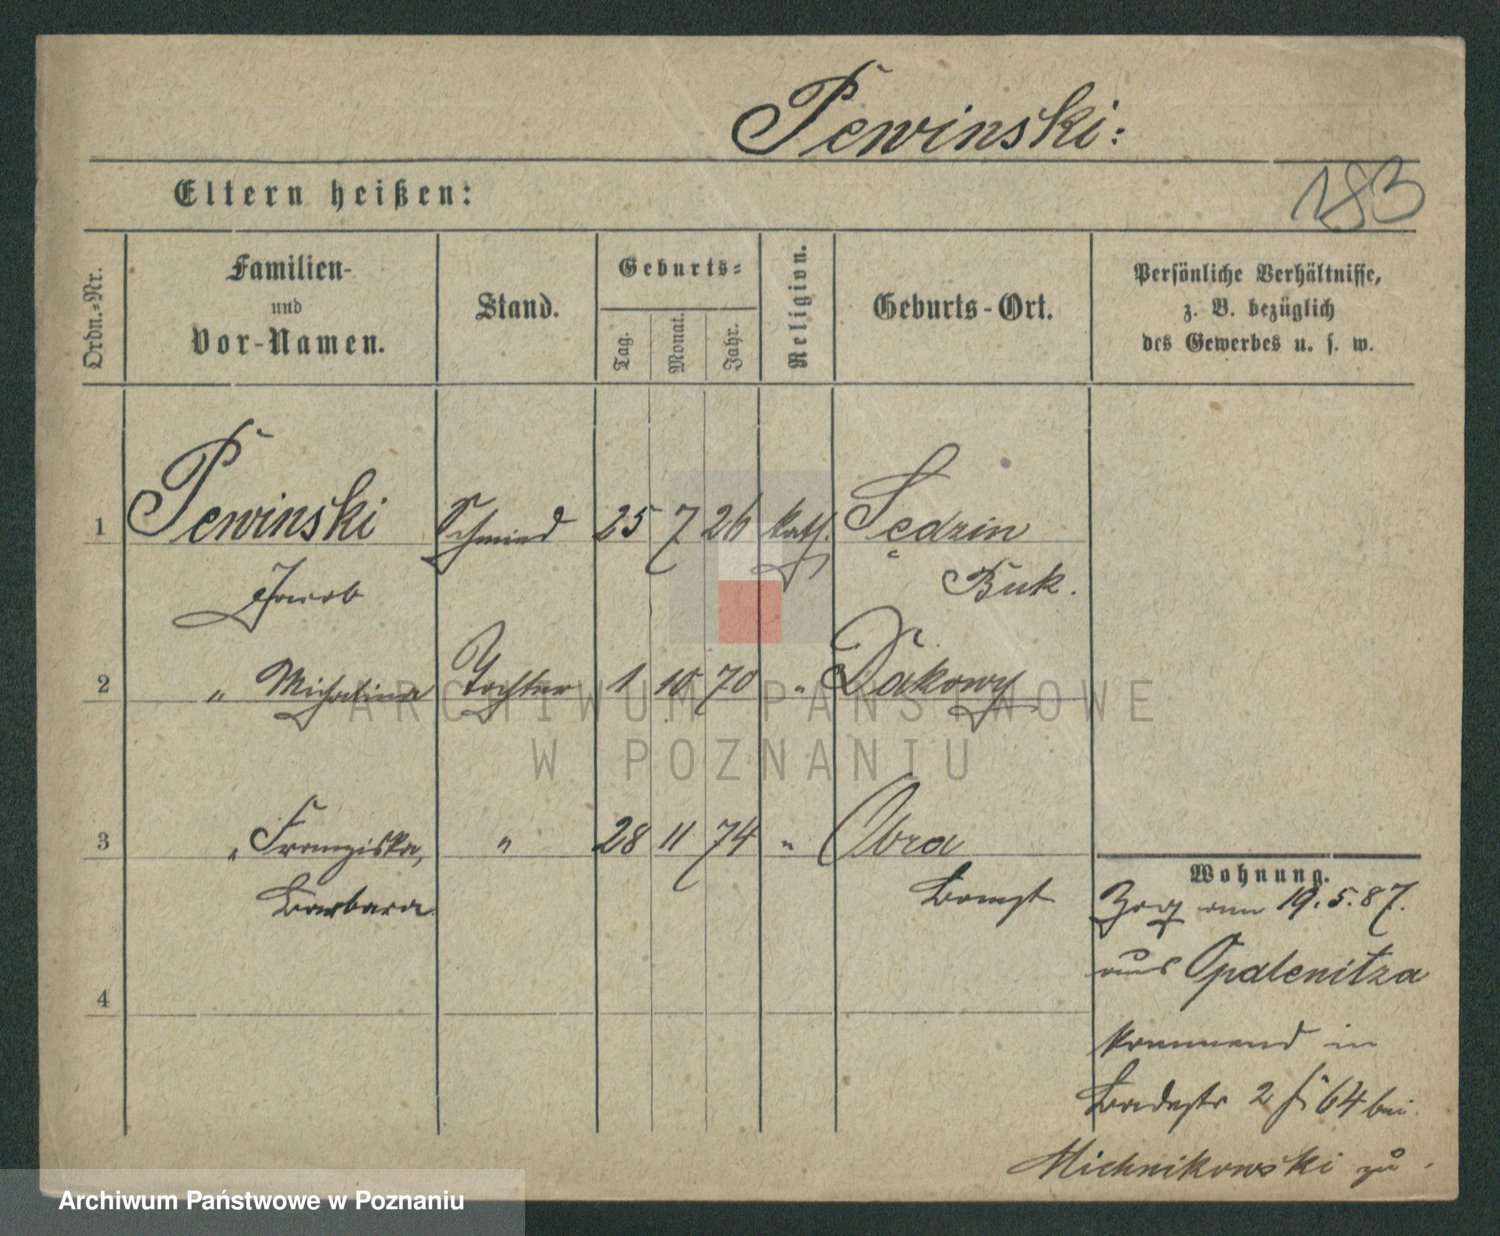 Pewinski:
183
Eltern heißen:
Ordn.-Nr.
Familien-
und
Vor-Namen.
Stand.
Geburts-
Tag.
Monat.
Jahr.
Religion.
Geburts-Ort.
Persönliche Verhältnisse,
z. B. bezüglich
des Gewerbes u. s. w.
1 Pewinski Schmied 25 7 26 kath. Sędzin
Jacob Buk.
2 " Michalina Tochter 1 10 70 " Dakowy
ARCHIWUM PAŃSTWOWE
W POZNANIU
3 " Franziska, " 28 11 74 " Obra
Barbara Bomst
Wohnung.
Zog am 19.5.87.
aus Opalenitza
4
kommend in
Badestr 2 64 bei
Michnikowski zu.
Archiwum Państwowe w Poznaniu